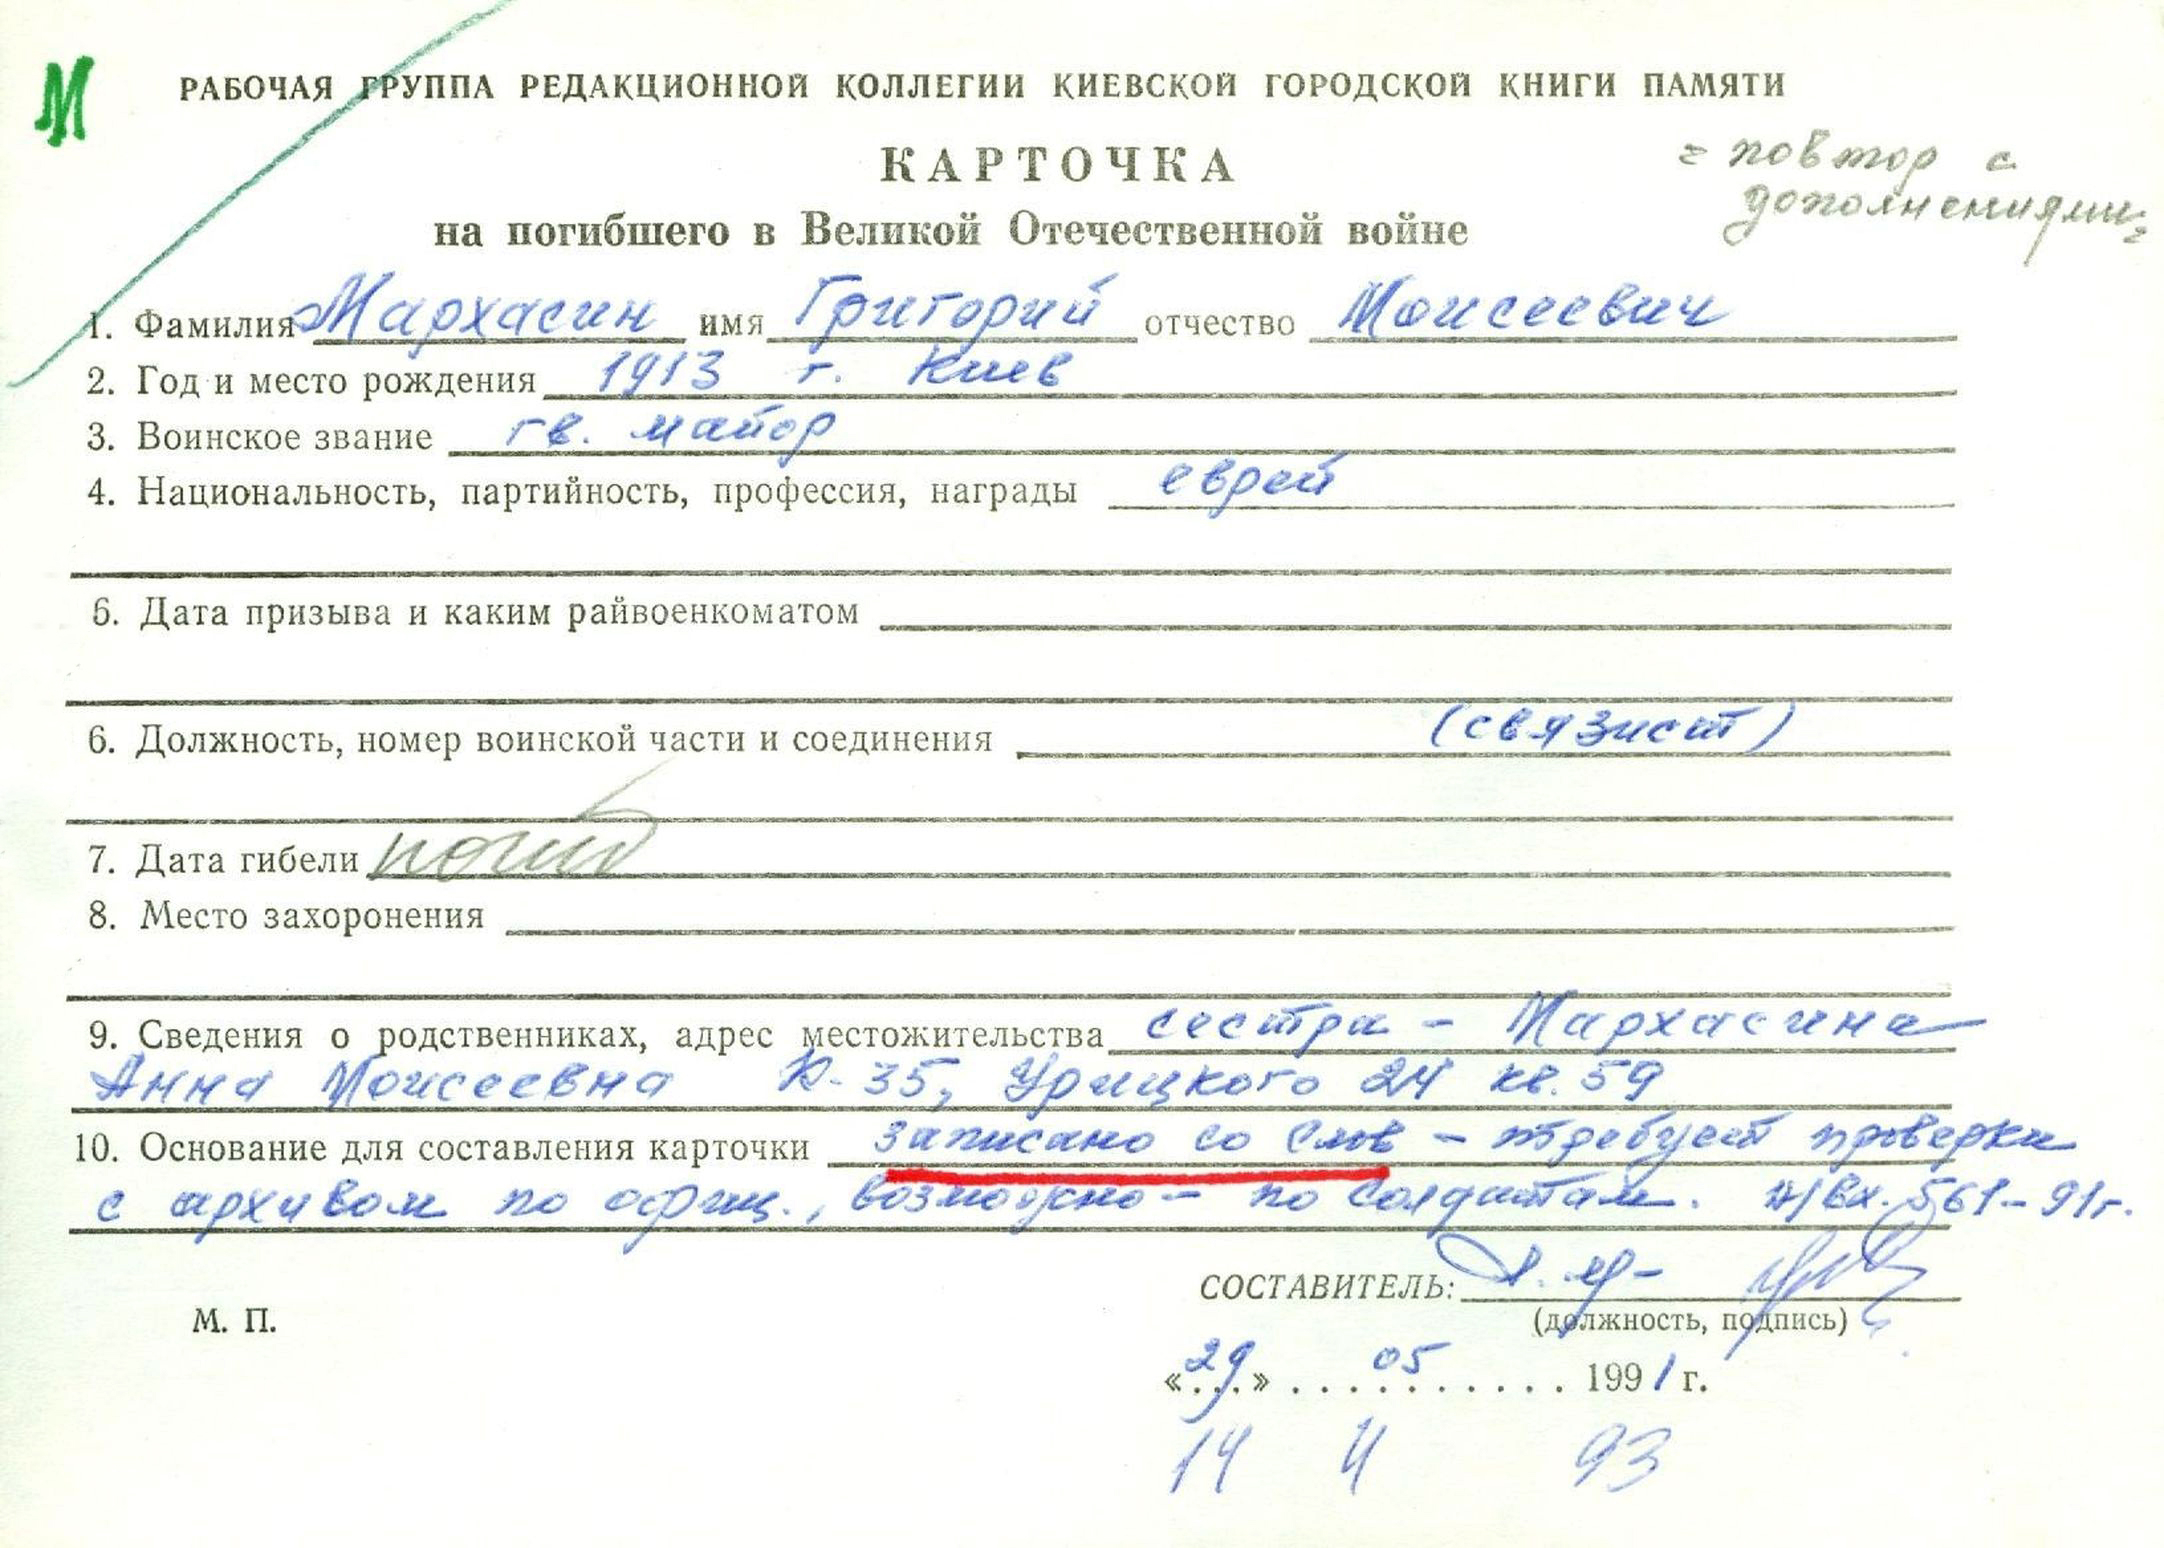 М
РАБОЧАЯ ГРУППА РЕДАКЦИОННОЙ КОЛЛЕГИИ КИЕВСКОЙ ГОРОДСКОЙ КНИГИ ПАМЯТИ
КАРТОЧКА
= повтор с
дополнениями =
на погибшего в Великой Отечественной войне
1. Фамилия Мархасин имя Григорий отчество Моисеевич
2. Год и место рождения 1913 г. Киев
3. Воинское звание гв. майор
4. Национальность, партийность, профессия, награды еврей
5. Дата призыва и каким райвоенкоматом
6. Должность, номер воинской части и соединения (связист)
7. Дата гибели погиб
8. Место захоронения
9. Сведения о родственниках, адрес местожительства сестра - Мархасина
Анна Моисеевна К-35, Урицкого 24 кв. 59
10. Основание для составления карточки записано со слов - требует проверки
с архивом по офиц., возможно - по солдатам. вх. 561-91г.
СОСТАВИТЕЛЬ:
М. П.
(должность, подпись)
«29» 05 1991 г.
14 4 93